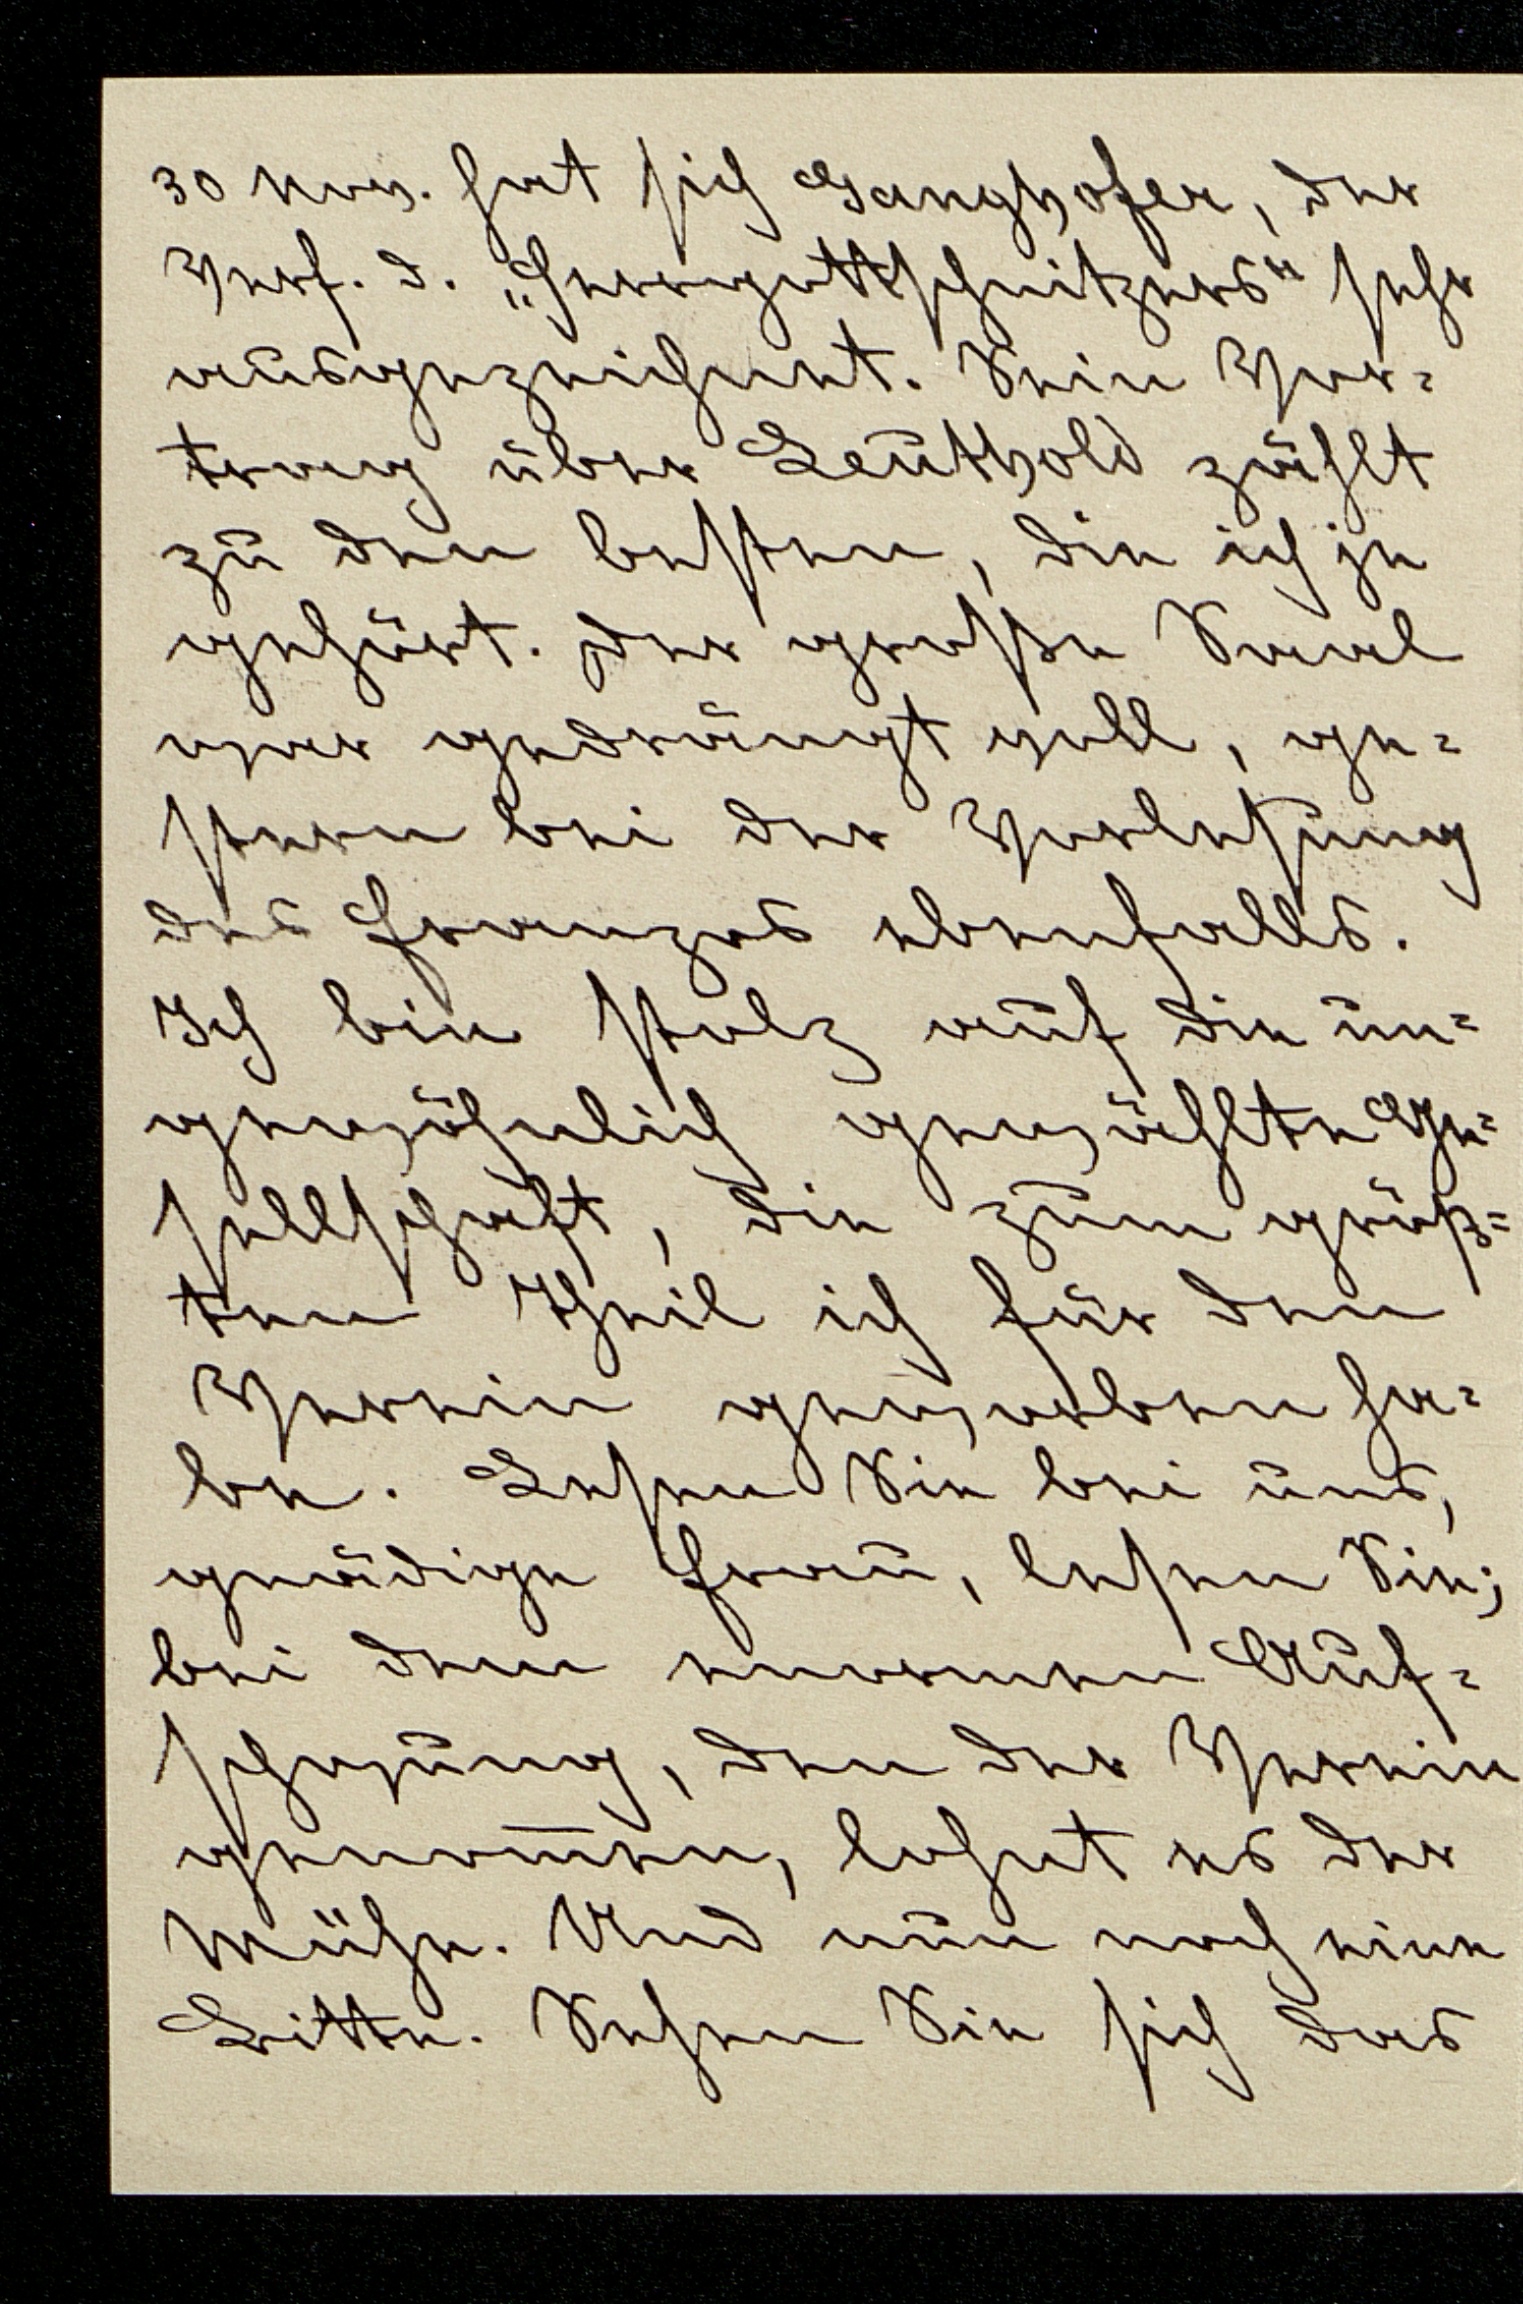 30 Nov. hat sich Ganghofer, der
Verf. d. „Herrgottschnitzers“ sehr
ausgezeichnet. Sein Vor-
trag über Leuthold zählt
zu den besten, die ich je
gehört. Der große Saal
war gedrängt voll, ge-
stern bei der Vorlesung
des Franzos ebenfalls.
Ich bin stolz auf die un-
gewöhnlich gewählte Ge-
sellschaft, die zum größ-
ten Theil ich für den
Verein geworben ha-
be. Lesen Sie bei uns,
gnädige Frau, lesen Sie;
bei dem enormen Auf-
schwung, den der Verein
genom̅en, lohnt es der
Mühe. Und nun noch eine
Bitte. Sehen Sie sich das